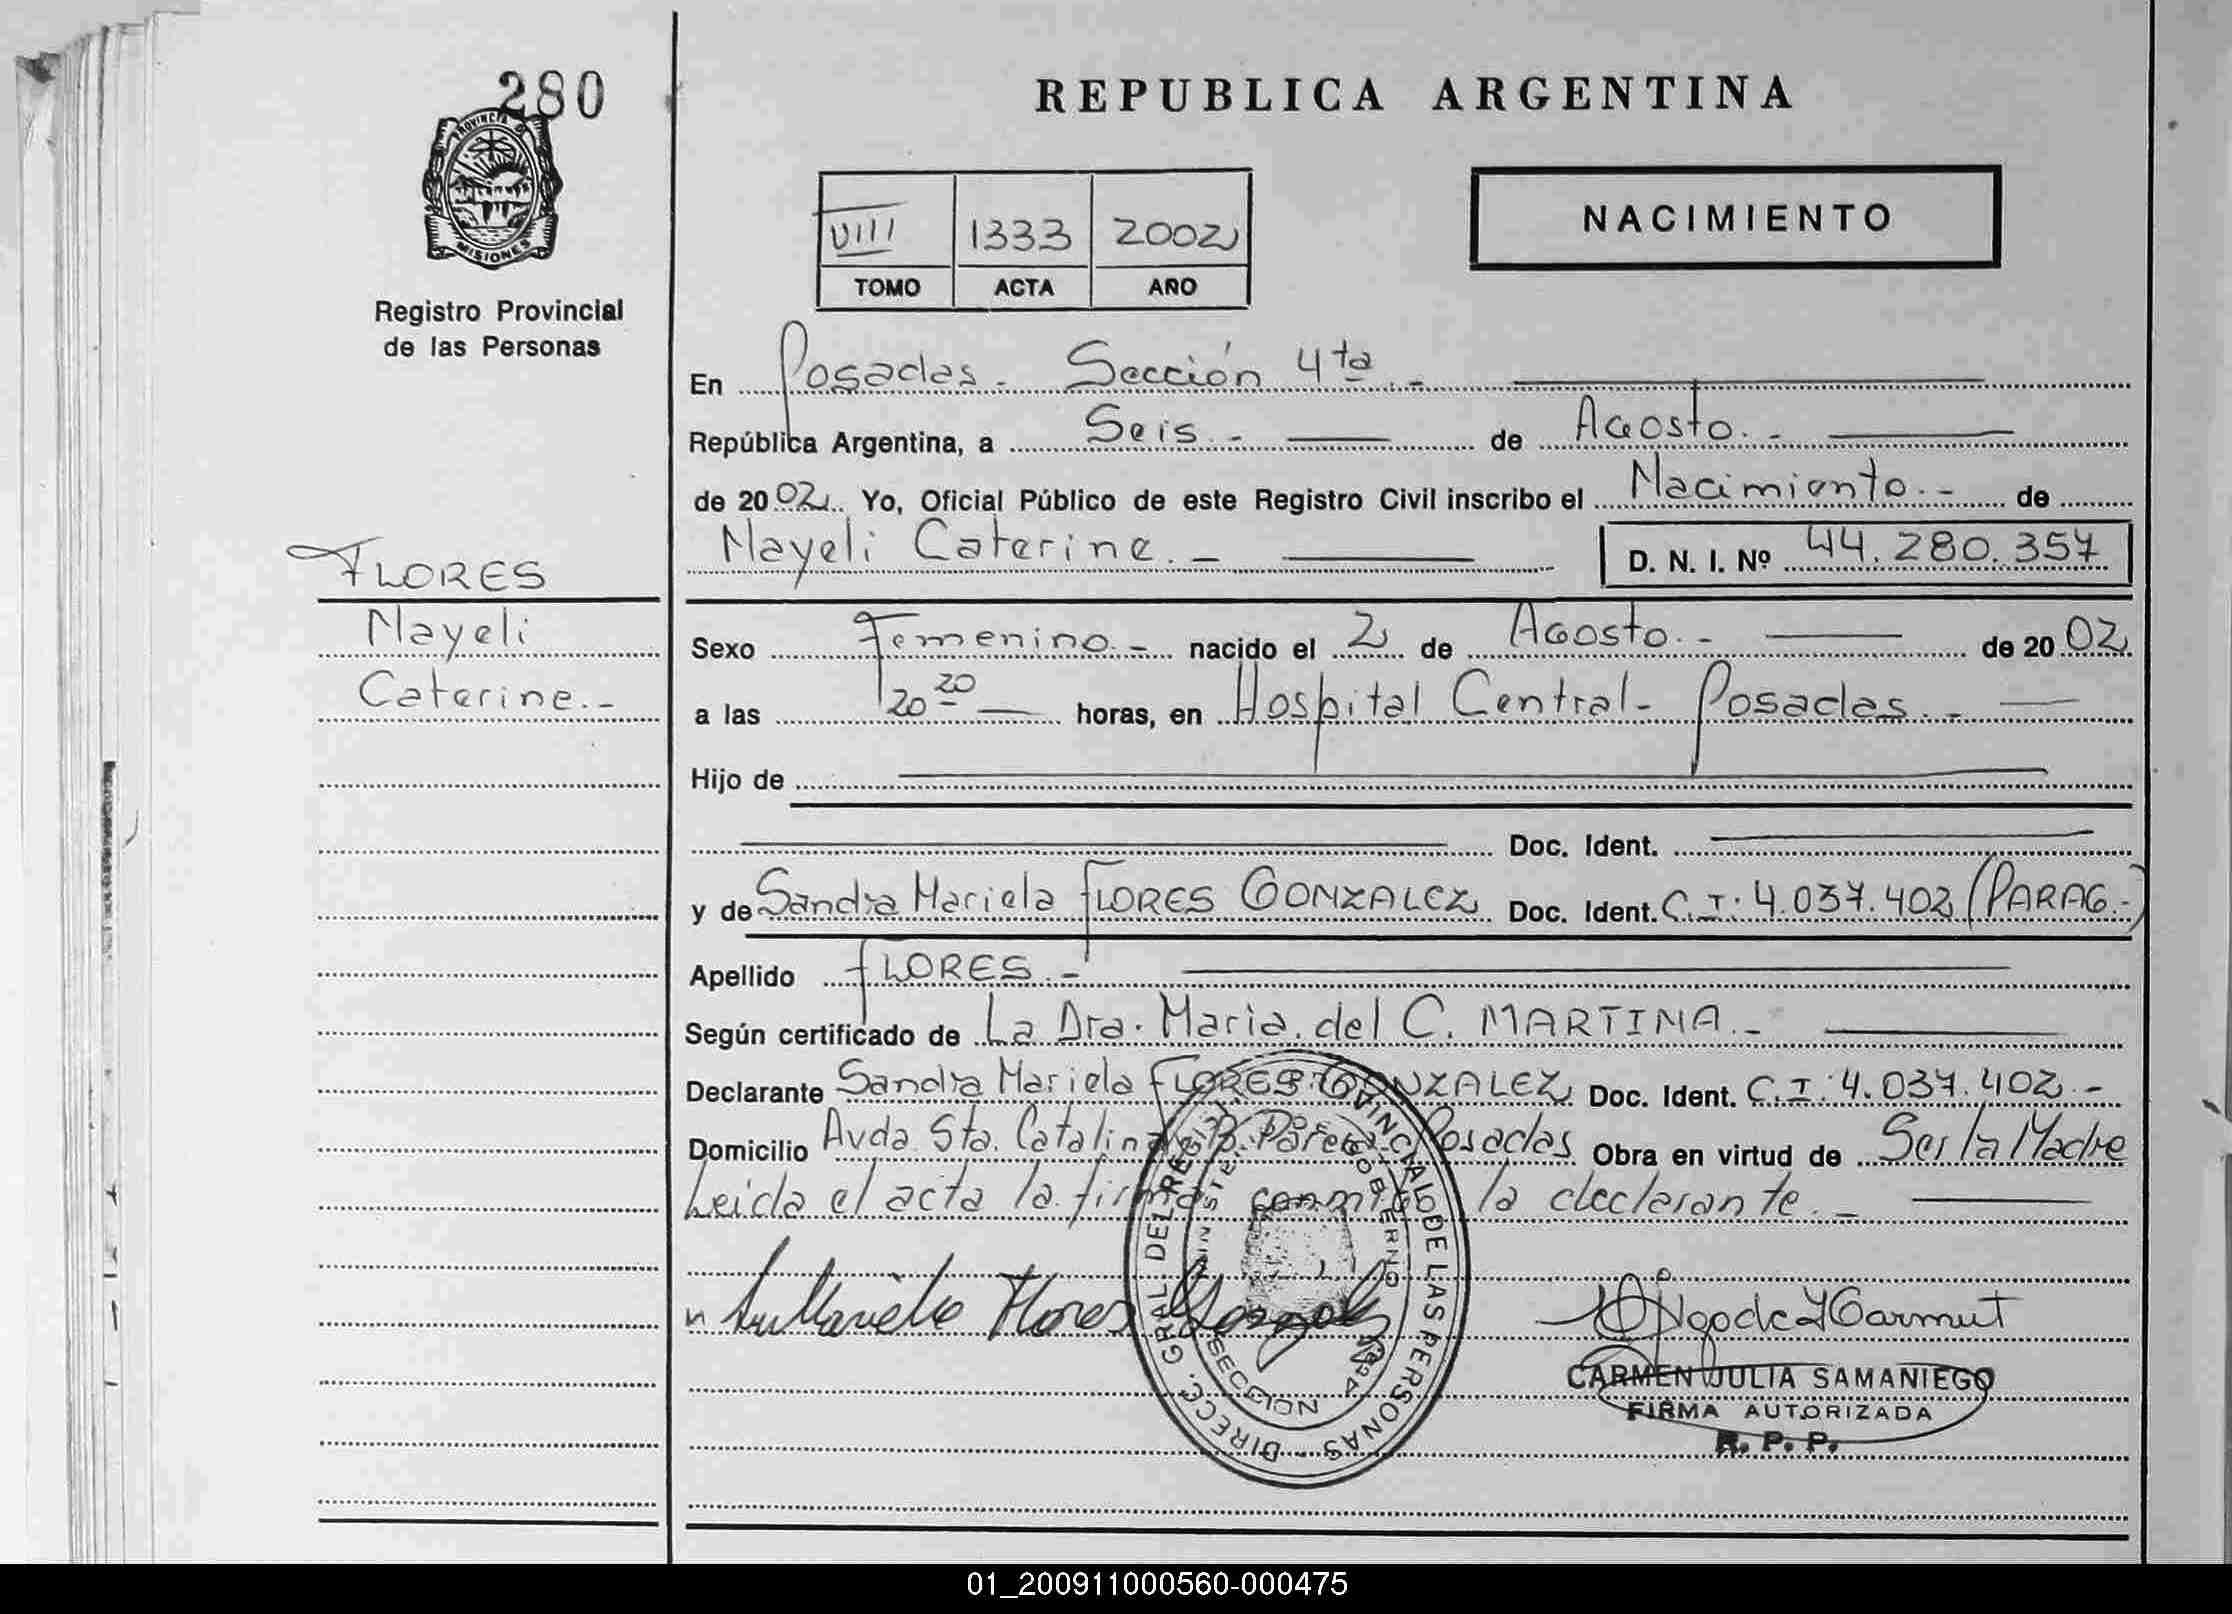 280
PROVINCIA DE
MISIONES
Registro Provincial
de las Personas
FLORES
Nayeli
Caterine.-
REPUBLICA ARGENTINA
NACIMIENTO
VIII 1333 2002
TOMO ACTA AÑO
En Posadas - Sección 4ta. -
República Argentina, a Seis. - de Agosto. -
de 20 02 Yo, Oficial Público de este Registro Civil inscribo el Nacimiento. - de
Nayeli Caterine. - D. N. I. Nº 44.280.357
Sexo Femenino. - nacido el 2 de Agosto. - de 20 02
a las 20 20 horas, en Hospital Central - Posadas. -
Hijo de
Doc. Ident.
y de Sandra Mariela FLORES GONZALEZ Doc. Ident. C.I: 4.037.402 (PARAG.-)
Apellido FLORES. -
Según certificado de La Dra. Maria del C. MARTINA. -
Declarante Sandra Mariela FLORES GONZALEZ Doc. Ident. C.I: 4.037.402. -
Domicilio Avda. Sta. Catalina Posadas Obra en virtud de Ser la Madre
Leida el acta la firma conmigo la declarante. -
Flores
DIRECC. GRAL DEL REGIST. PROVINCIAL DE LAS PERSONAS
MINISTE. GOBIERNO
SECCION 4
CARMEN JULIA SAMANIEGO
FIRMA AUTORIZADA
R. P. P.
01_200911000560-000475